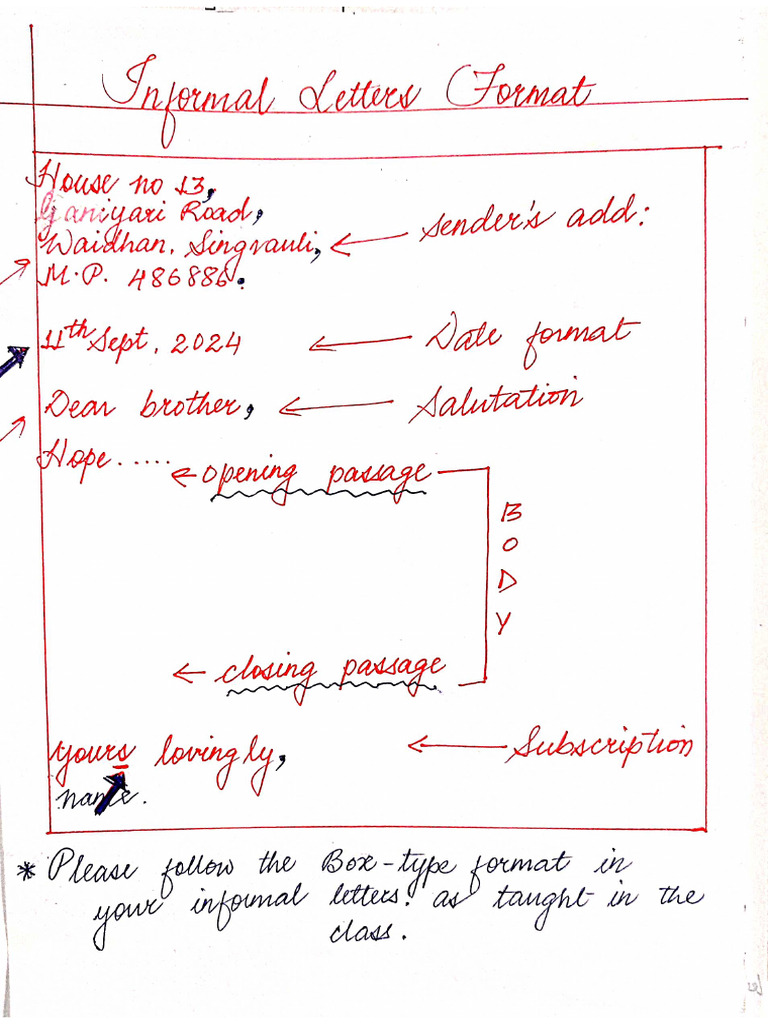 Informal Letters Format
House no 13,
Ganiyari Road,
Waidhan, Singrauli, ← sender's add:
M.P. 486886.
11th Sept, 2024 ← Date format
Dear brother, ← Salutation
Hope..... ← opening passage
BODY
← closing passage
yours lovingly, ← Subscription
name.
* Please follow the Box-type format in
your informal letters. as taught in the
class.